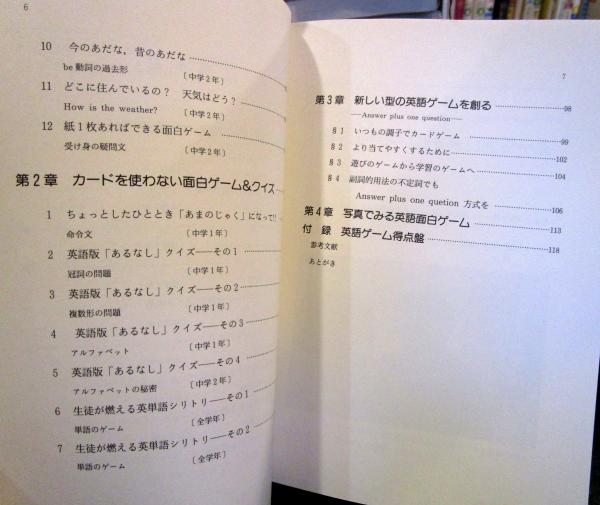 6
10 今のあだな，昔のあだな
be動詞の過去形 〔中学2年〕
11 どこに住んでいるの？ 天気はどう？
How is the weather? 〔中学2年〕
12 紙1枚あればできる面白ゲーム
受け身の疑問文 〔中学2年〕
第2章 カードを使わない面白ゲーム&クイズ
1 ちょっとしたひととき「あまのじゃく」になって!!
命令文 〔中学1年〕
2 英語版「あるなし」クイズ――その1
冠詞の問題 〔中学1年〕
3 英語版「あるなし」クイズ――その2
複数形の問題 〔中学1年〕
4 英語版「あるなし」クイズ――その3
アルファベット 〔中学1年〕
5 英語版「あるなし」クイズ――その4
アルファベットの秘密 〔中学2年〕
6 生徒が燃える英単語シリトリ――その1
単語のゲーム 〔全学年〕
7 生徒が燃える英単語シリトリ――その2
単語のゲーム 〔全学年〕
7
第3章 新しい型の英語ゲームを創る 98
――Answer plus one question――
§1 いつもの調子でカードゲーム 99
§2 より当てやすくするために 102
§3 遊びのゲームから学習のゲームへ 104
§4 副詞的用法の不定詞でも
Answer plus one quetion 方式を 106
第4章 写真でみる英語面白ゲーム 113
付 録 英語ゲーム得点盤 118
参考文献
あとがき